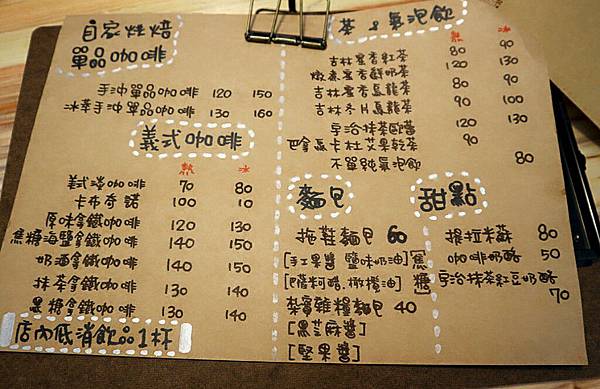 自家烘焙
單品咖啡
手沖單品咖啡 120 150
冰萃手沖單品咖啡 130 160
義式咖啡
熱 冰
美式淡咖啡 70 80
卡布奇諾 100 10
原味拿鐵咖啡 120 130
焦糖海鹽拿鐵咖啡 140 150
奶酒拿鐵咖啡 140 150
抹茶拿鐵咖啡 130 140
黑糖拿鐵咖啡 130 140
店內低消飲品1杯
茶 & 氣泡飲
熱 冰
吉林蜜香紅茶 80 90
燉煮蜜香鮮奶茶 120 130
吉林蜜香烏龍茶 80 90
吉林冬片烏龍茶 90 100
宇治抹茶歐蕾 120 130
巴拿馬卡杜艾果乾茶 90
不單純氣泡飲 80
麵包
拖鞋麵包 60
[手工果醬 鹽味奶油]
[陽 橄欖油]
[焦糖]
雜糧麵包 40
[黑芝麻醬]
[堅果醬]
甜點
提拉米蘇 80
咖啡奶酪 50
宇治抹茶紅豆奶酪
70